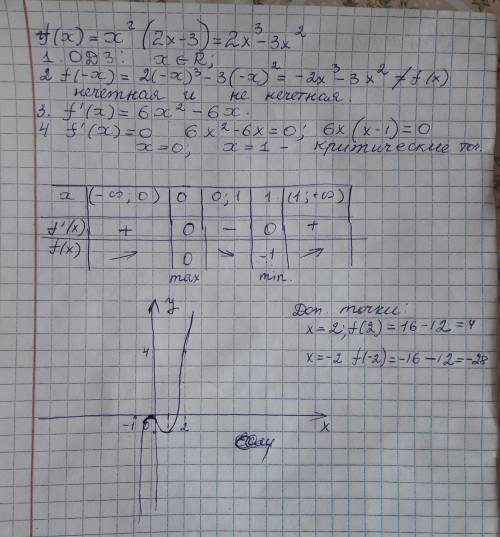 f(x) = x² (2x-3) = 2x³-3x²
1. ОДЗ: x∈R;
2 f(-x) = 2(-x)³-3(-x)² = -2x³-3x² ≠ f(x)
нечетная и не нечетная.
3. f'(x) = 6x²-6x.
4 f'(x)=0 6x²-6x=0; 6x(x-1)=0
x=0; x=1 - критические то.
x (-∞; 0) 0 0; 1 1 (1; +∞)
f'(x) + 0 - 0 +
f(x) → 0 ↘ -1 ↗
max min.
y
Доп. точки:
x=2; f(2) = 16-12 = 4
x=-2 f(-2) = -16-12 = -28
4
-1 0 2 x